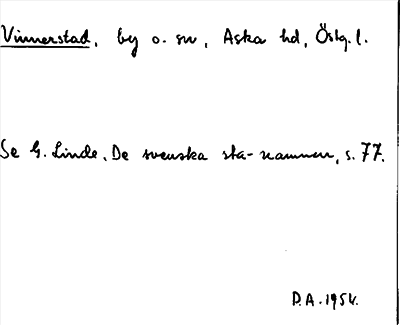 Vinnerstad, by o. sn, Aska hd, Östg. l.
Se G. Linde, De svenska sta-namnen, s. 77.
D.A. 1954.